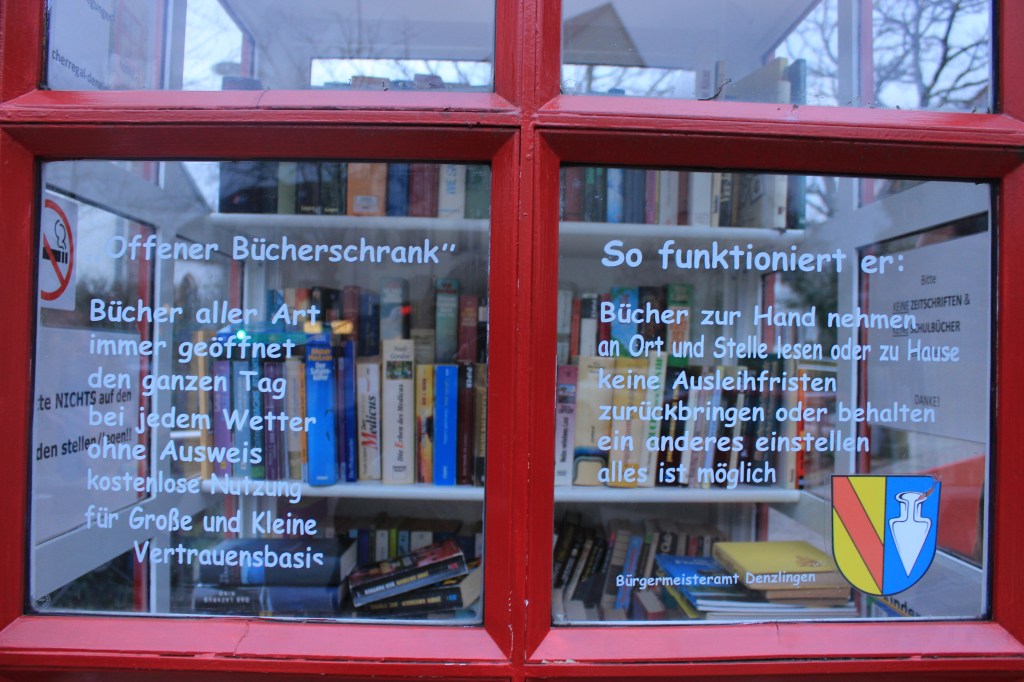 Offener Bücherschrank”
Bücher aller Art
immer geöffnet
den ganzen Tag
bei jedem Wetter
ohne Ausweis
kostenlose Nutzung
für Große und Kleine
Vertrauensbasis
So funktioniert er:
Bücher zur Hand nehmen
an Ort und Stelle lesen oder zu Hause
keine Ausleihfristen
zurückbringen oder behalten
ein anderes einstellen
alles ist möglich
Bürgermeisteramt Denzlingen
NICHTS auf den
den stellen/legen!!
Bitte
KEINE ZEITSCHRIFTEN &
SCHULBÜCHER
DANKE!
Der Medicus
Die Erben des Medicus